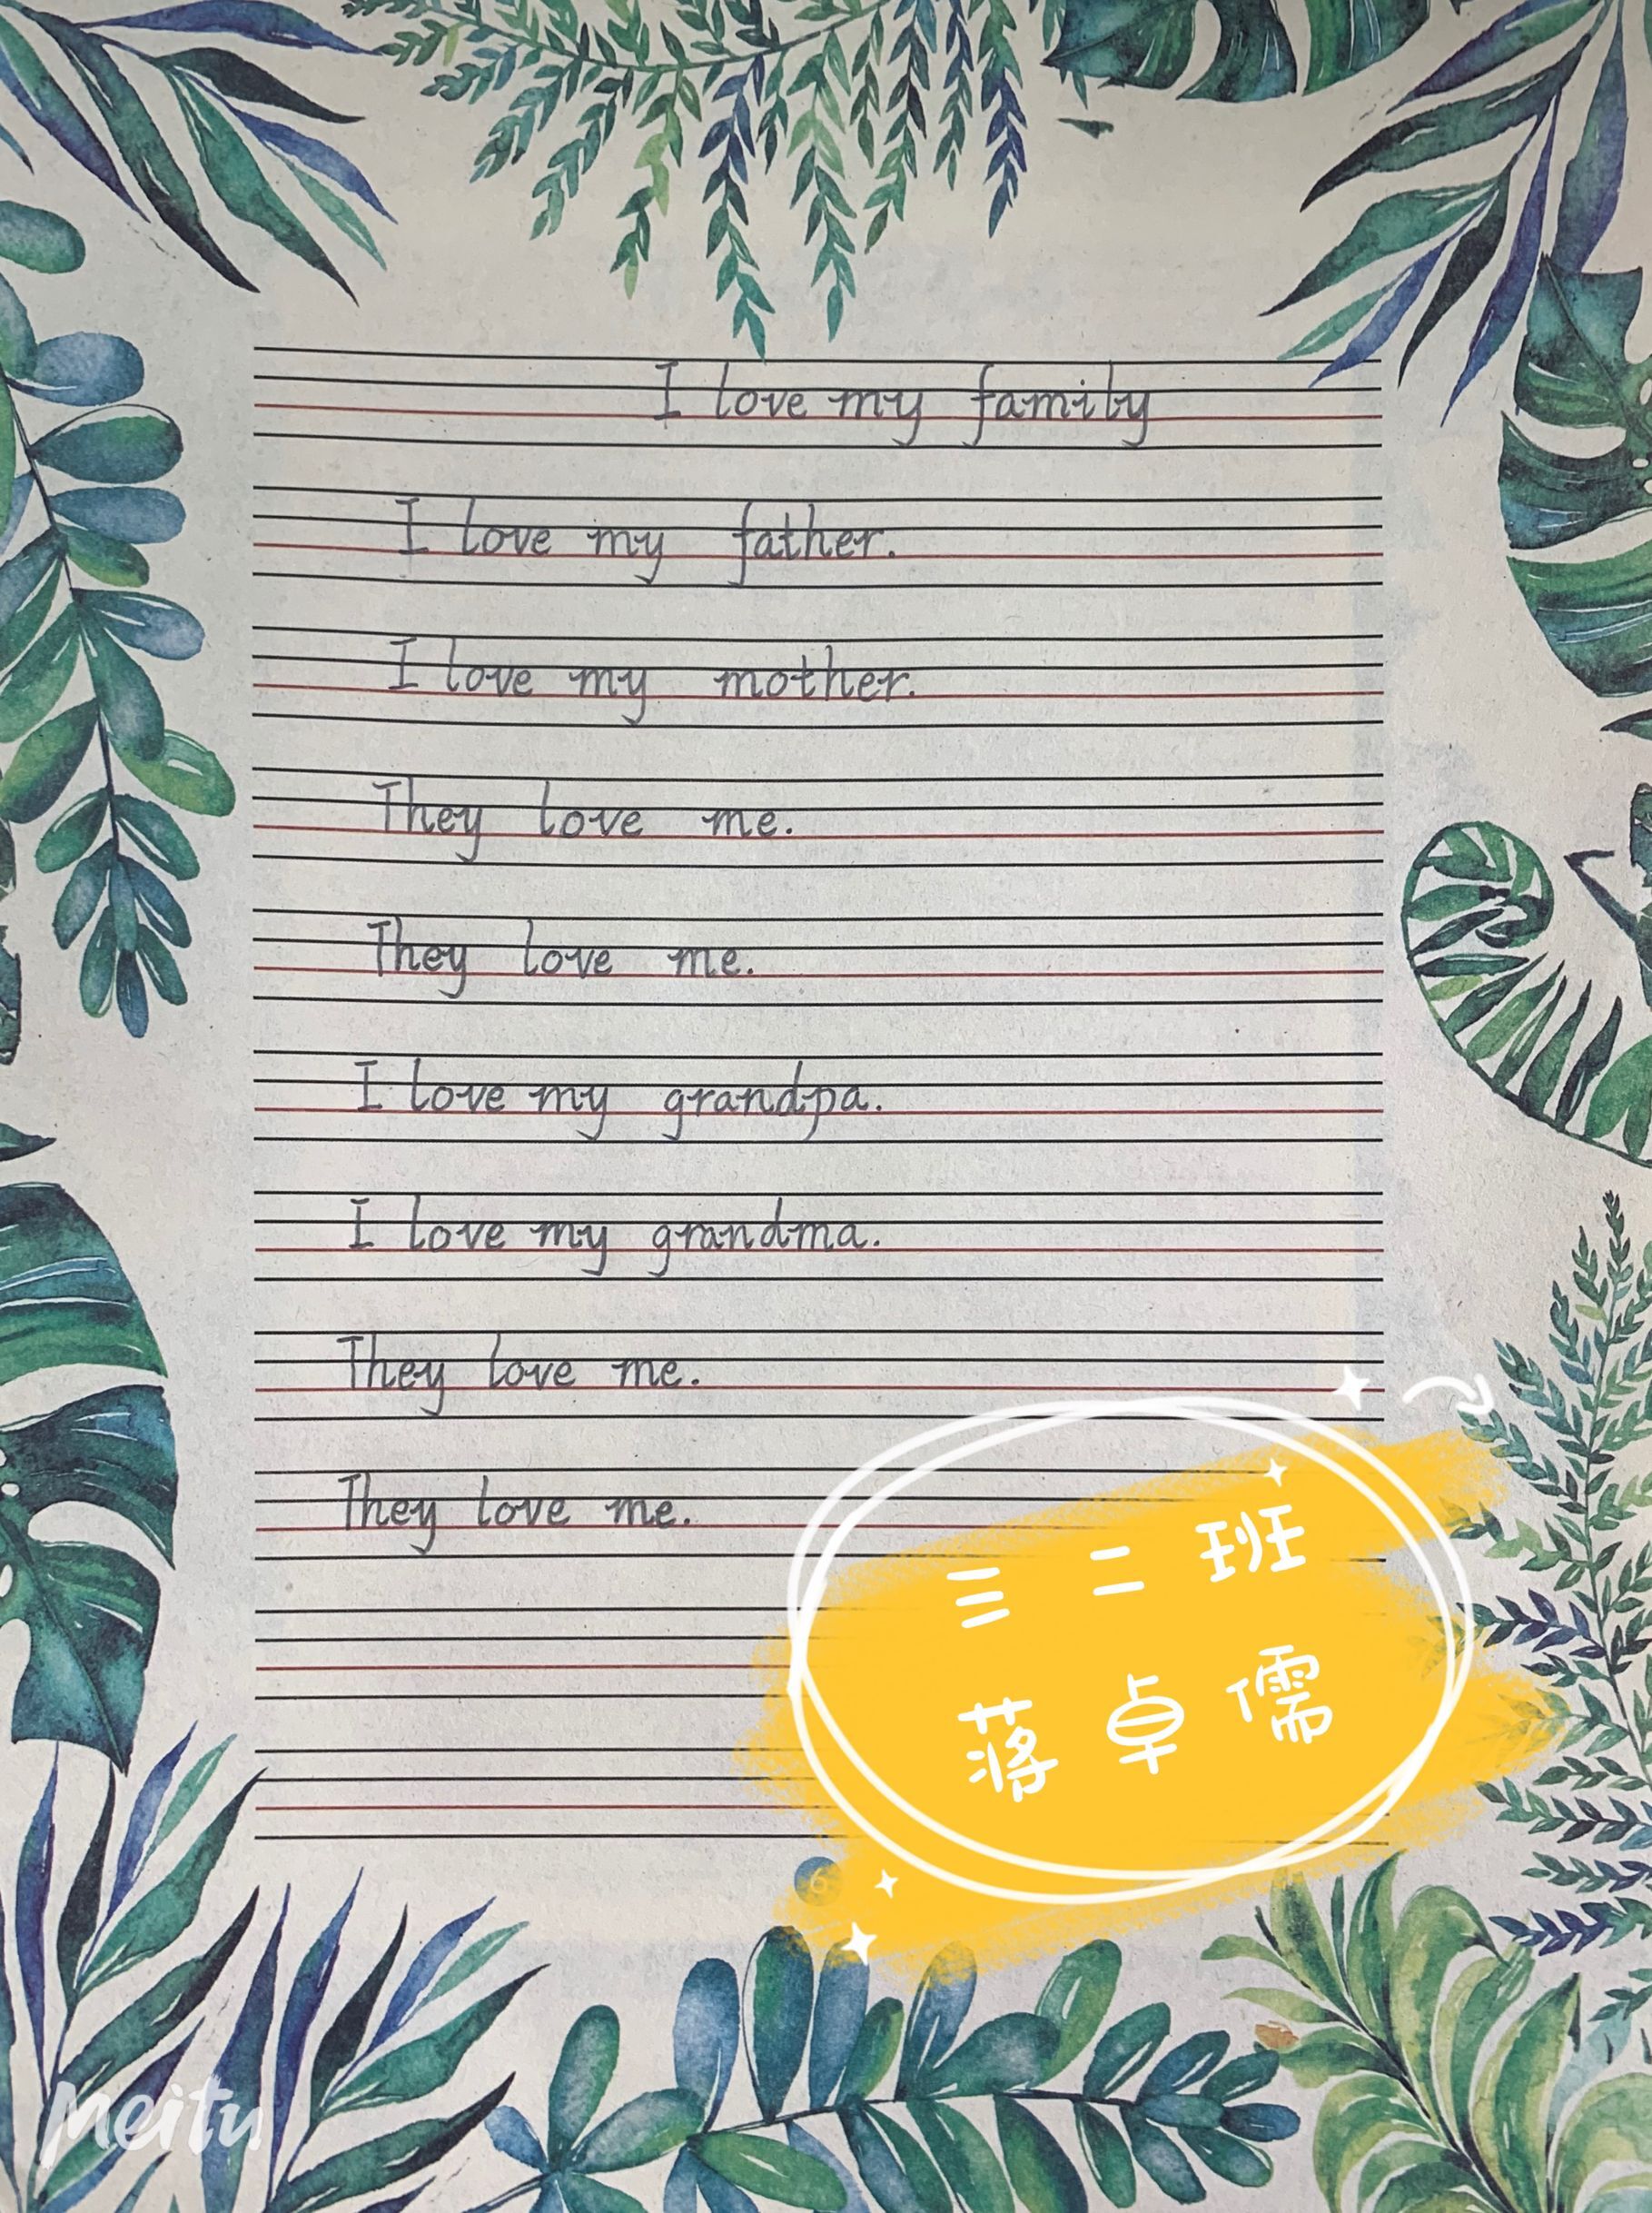 I love my family
I love my father.
I love my mother.
They love me.
They love me.
I love my grandpa.
I love my grandma.
They love me.
They love me.
三 二 班
蒋 卓 儒
6
Meitu